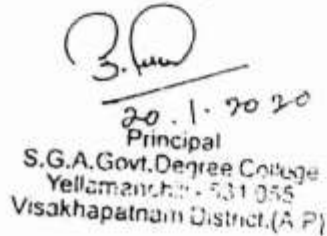 20.1.2020
Principal
S.G.A.Govt.Degree College
531 055
Visakhapatnam District.(A.P)